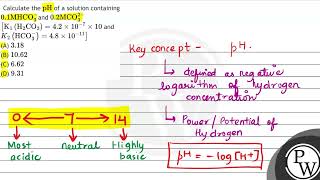 Calculate the pH of a solution containing
0.1MHCO₃⁻ and 0.2MCO₃²⁻
[K₁(H₂CO₃) = 4.2 × 10⁻⁷ × 10 and
K₂(HCO₃⁻) = 4.8 × 10⁻¹¹]
(A) 3.18
(B) 10.62
(C) 6.62
(D) 9.31
Key concept - pH.
↳ defined as negative
logarithm of hydrogen
concentration
↳ Power/Potential of
Hydrogen
pH = -log[H+]
0 ← 7 → 14
Most acidic
neutral
Highly basic
PW